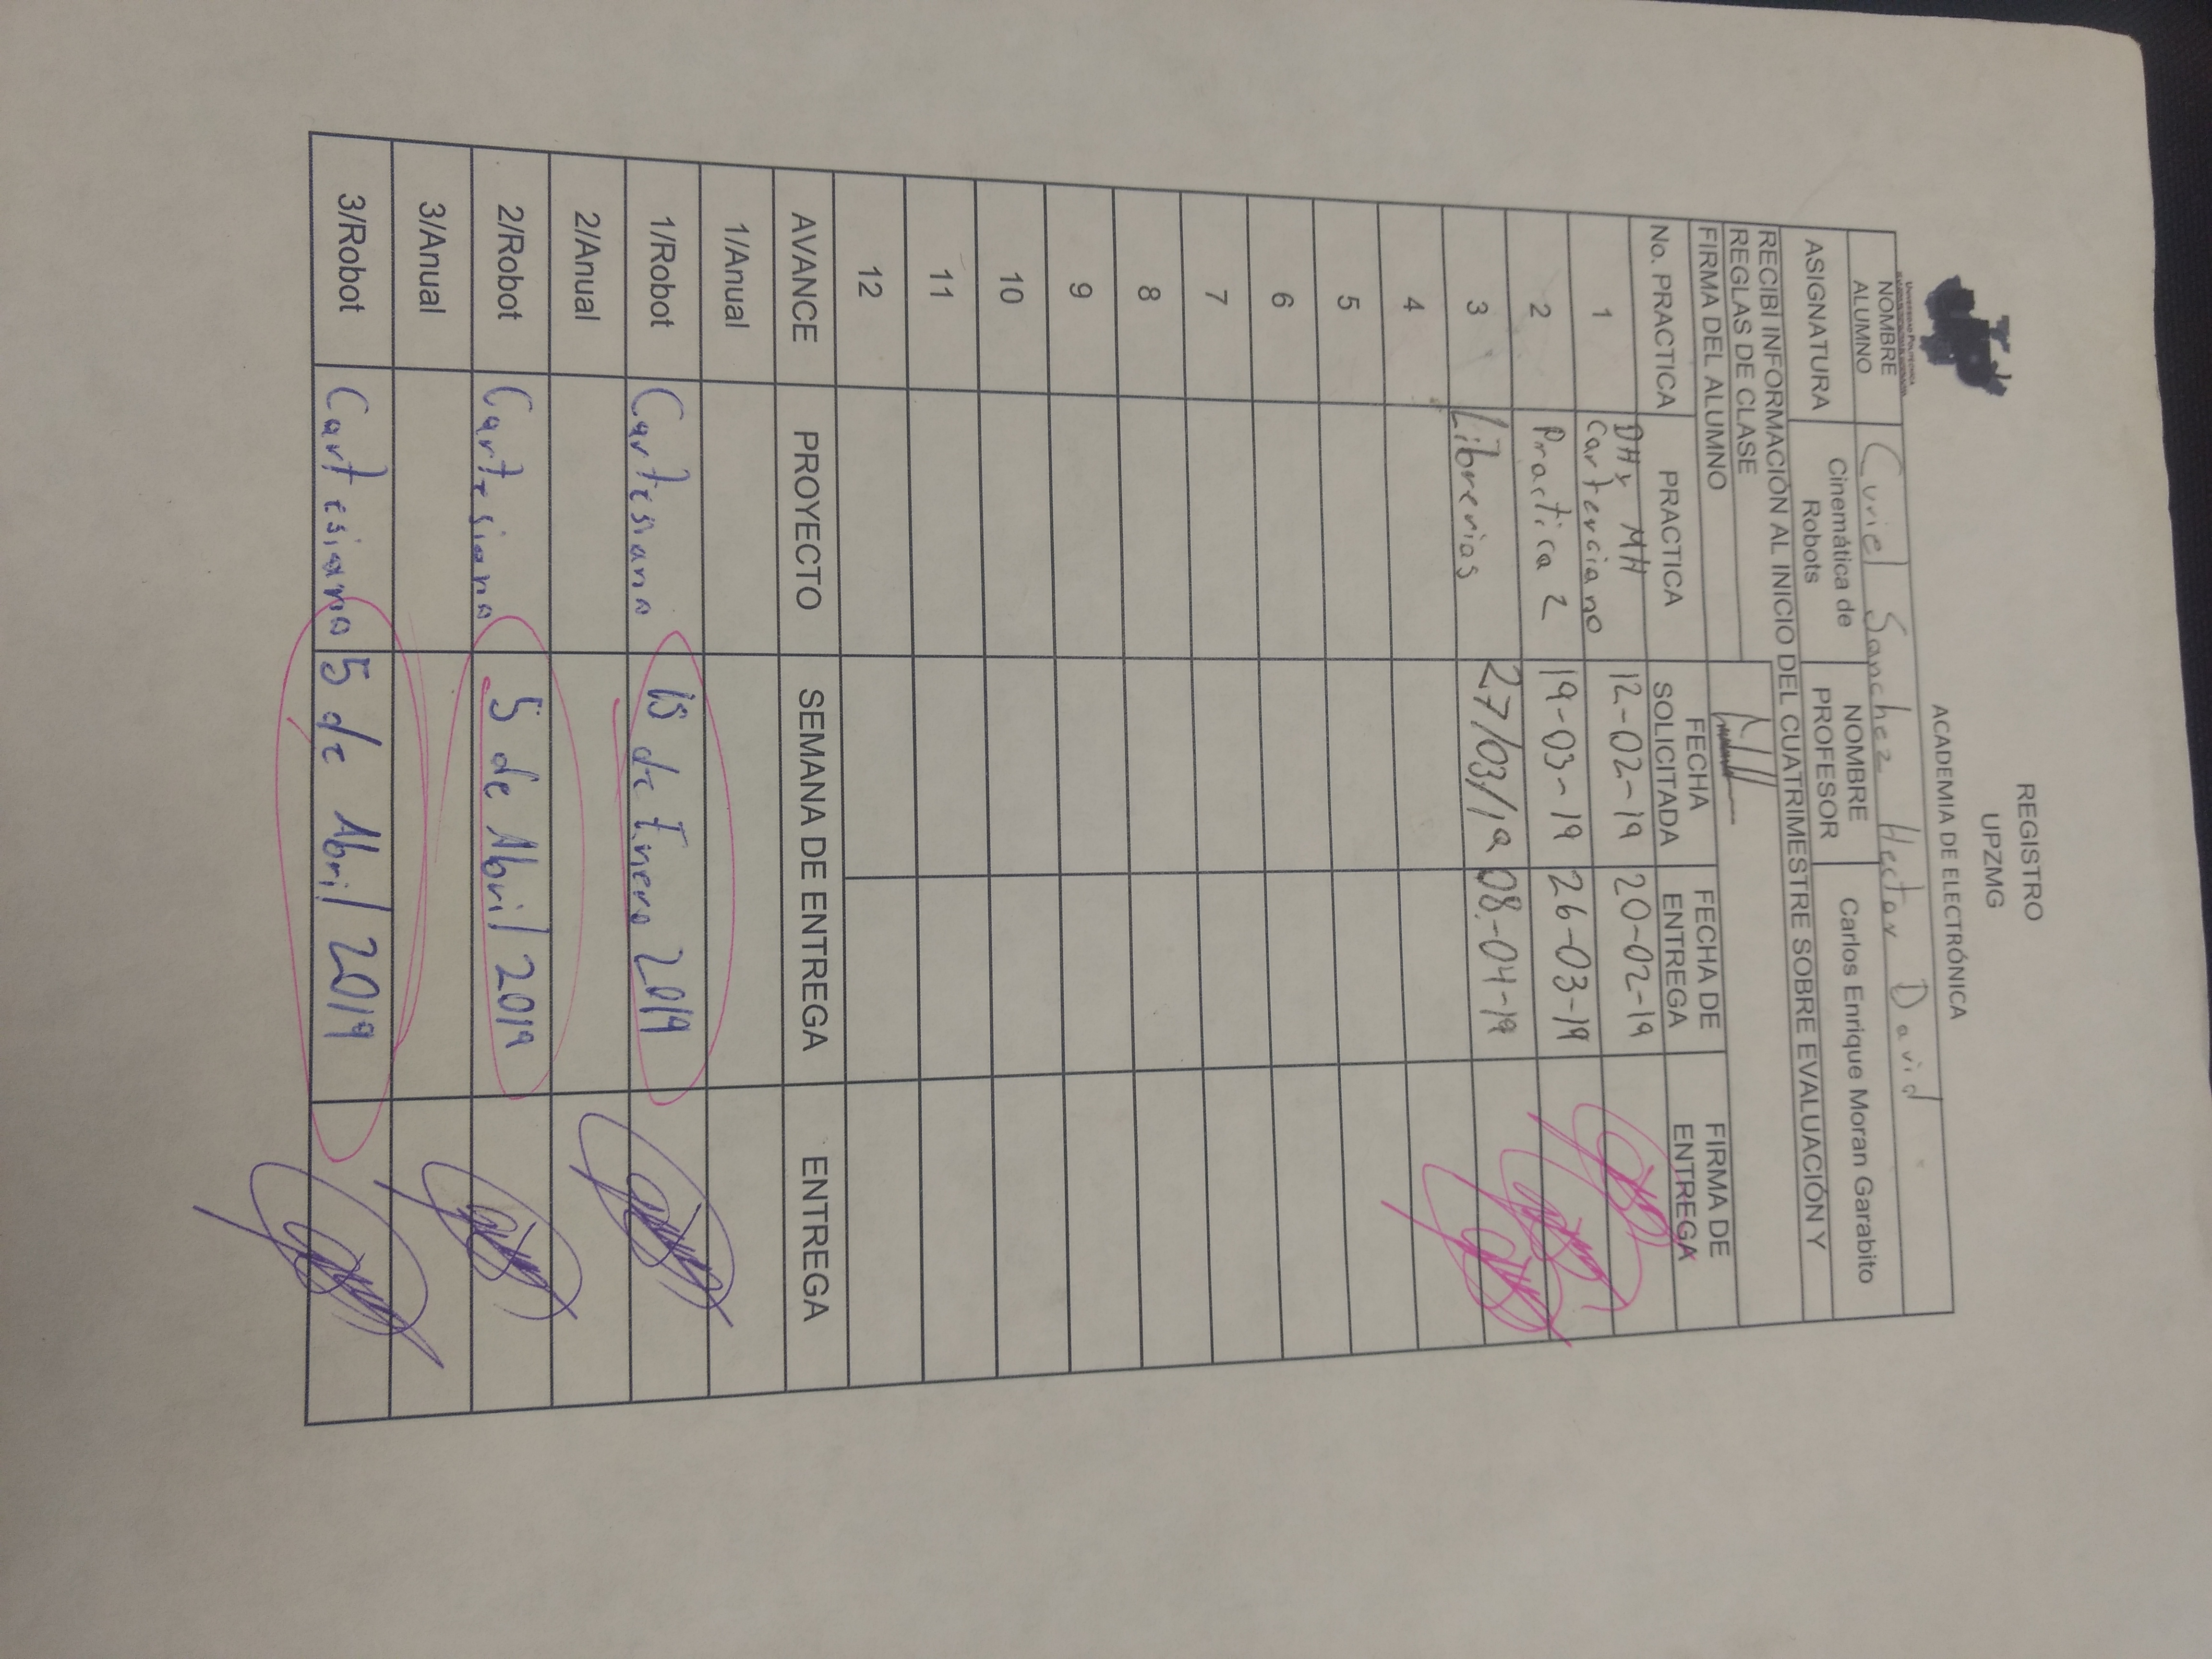 REGISTRO
UPZMG
ACADEMIA DE ELECTRÓNICA
UNIVERSIDAD POLITÉCNICA
NOMBRE ALUMNO Curiel Sanchez Hector David
ASIGNATURA Cinemática de Robots NOMBRE PROFESOR Carlos Enrique Moran Garabito
RECIBÍ INFORMACIÓN AL INICIO DEL CUATRIMESTRE SOBRE EVALUACIÓN Y
REGLAS DE CLASE
FIRMA DEL ALUMNO
No. PRACTICA PRACTICA FECHA SOLICITADA FECHA DE ENTREGA FIRMA DE ENTREGA
1 DH y MH Carterciano 12-02-19 20-02-19
2 Practica 2 19-03-19 26-03-19
3 Librerias 27/03/19 08-04-19
4
5
6
7
8
9
10
11
12
AVANCE PROYECTO SEMANA DE ENTREGA ENTREGA
1/Anual
1/Robot Cartesiano 15 de Enero 2019
2/Anual
2/Robot Cartesiano 5 de Abril 2019
3/Anual
3/Robot Cartesiano 5 de Abril 2019